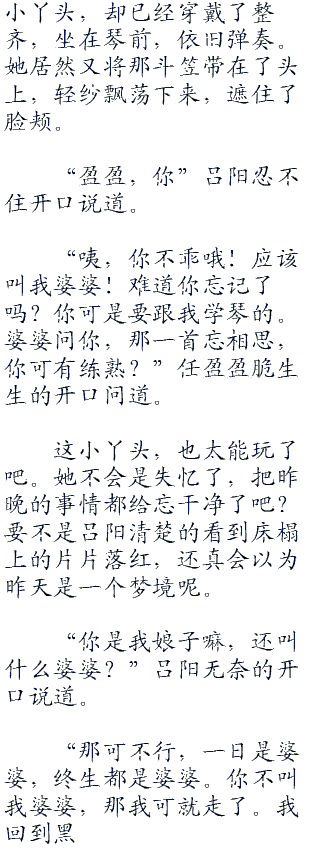 小丫头，却已经穿戴了整
齐，坐在琴前，依旧弹奏。
她居然又将那斗笠带在了头
上，轻纱飘荡下来，遮住了
脸颊。
“盈盈，你”吕阳忍不
住开口说道。
“咦，你不乖哦！应该
叫我婆婆！难道你忘记了
吗？你可是要跟我学琴的。
婆婆问你，那一首忘相思，
你可有练熟？”任盈盈脆生
生的开口问道。
这小丫头，也太能玩了
吧。她不会是失忆了，把昨
晚的事情都给忘干净了吧？
要不是吕阳清楚的看到床榻
上的片片落红，还真会以为
昨天是一个梦境呢。
“你是我娘子嘛，还叫
什么婆婆？”吕阳无奈的开
口说道。
“那可不行，一日是婆
婆，终生都是婆婆。你不叫
我婆婆，那我可就走了。我
回到黑